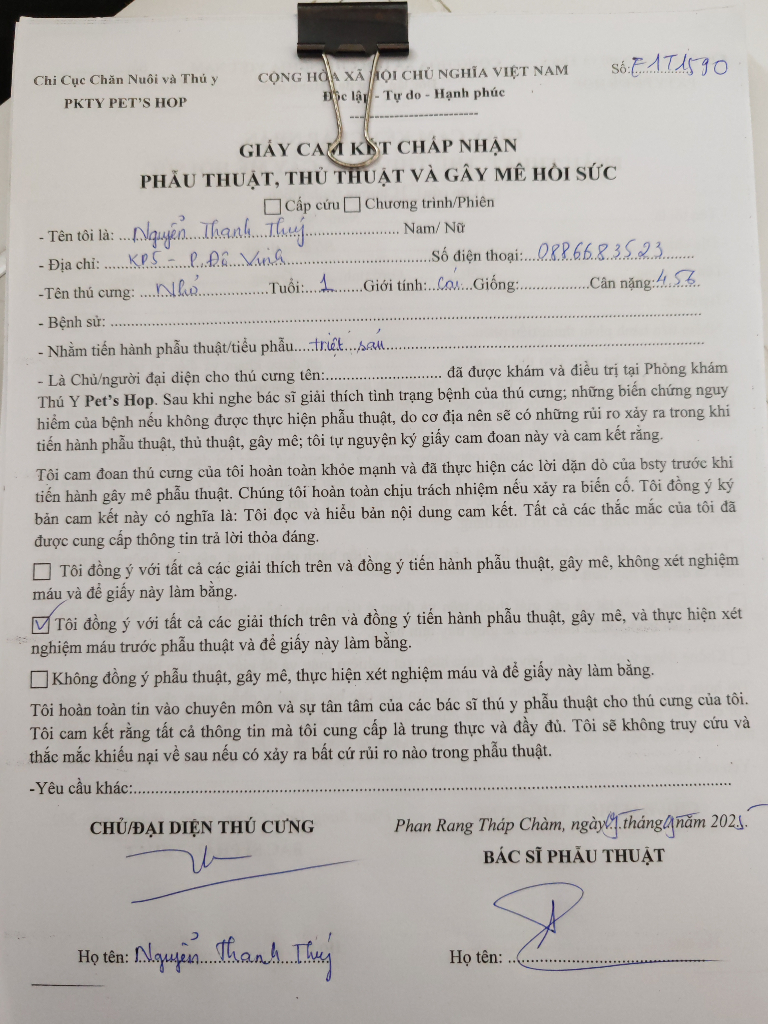 Chi Cục Chăn Nuôi và Thú y
PKTY PET'S HOP
CỘNG HÒA XÃ HỘI CHỦ NGHĨA VIỆT NAM
Độc lập - Tự do - Hạnh phúc
Số: E1T1590
GIẤY CAM KẾT CHẤP NHẬN
PHẪU THUẬT, THỦ THUẬT VÀ GÂY MÊ HỒI SỨC
Cấp cứu Chương trình/Phiên
- Tên tôi là: Nguyễn Thanh Thuý Nam/ Nữ
- Địa chỉ: KP5 - P. Đô Vinh Số điện thoại: 0886683523
-Tên thú cưng: Nhỏ Tuổi: 1 Giới tính: Cái Giống: Cân nặng: 4.56
- Bệnh sử:
- Nhằm tiến hành phẫu thuật/tiểu phẫu triệt sản
- Là Chủ/người đại diện cho thú cưng tên: đã được khám và điều trị tại Phòng khám
Thú Y Pet's Hop. Sau khi nghe bác sĩ giải thích tình trạng bệnh của thú cưng; những biến chứng nguy
hiểm của bệnh nếu không được thực hiện phẫu thuật, do cơ địa nên sẽ có những rủi ro xảy ra trong khi
tiến hành phẫu thuật, thủ thuật, gây mê; tôi tự nguyện ký giấy cam đoan này và cam kết rằng.
Tôi cam đoan thú cưng của tôi hoàn toàn khỏe mạnh và đã thực hiện các lời dặn dò của bsty trước khi
tiến hành gây mê phẫu thuật. Chúng tôi hoàn toàn chịu trách nhiệm nếu xảy ra biến cố. Tôi đồng ý ký
bản cam kết này có nghĩa là: Tôi đọc và hiểu bản nội dung cam kết. Tất cả các thắc mắc của tôi đã
được cung cấp thông tin trả lời thỏa đáng.
Tôi đồng ý với tất cả các giải thích trên và đồng ý tiến hành phẫu thuật, gây mê, không xét nghiệm
máu và để giấy này làm bằng.
Tôi đồng ý với tất cả các giải thích trên và đồng ý tiến hành phẫu thuật, gây mê, và thực hiện xét
nghiệm máu trước phẫu thuật và để giấy này làm bằng.
Không đồng ý phẫu thuật, gây mê, thực hiện xét nghiệm máu và để giấy này làm bằng.
Tôi hoàn toàn tin vào chuyên môn và sự tân tâm của các bác sĩ thú y phẫu thuật cho thú cưng của tôi.
Tôi cam kết rằng tất cả thông tin mà tôi cung cấp là trung thực và đầy đủ. Tôi sẽ không truy cứu và
thắc mắc khiếu nại về sau nếu có xảy ra bất cứ rủi ro nào trong phẫu thuật.
-Yêu cầu khác:
CHỦ/ĐẠI DIỆN THÚ CƯNG
Phan Rang Tháp Chàm, ngày tháng 9 năm 2025
BÁC SĨ PHẪU THUẬT
Họ tên: Nguyễn Thanh Thuý
Họ tên: